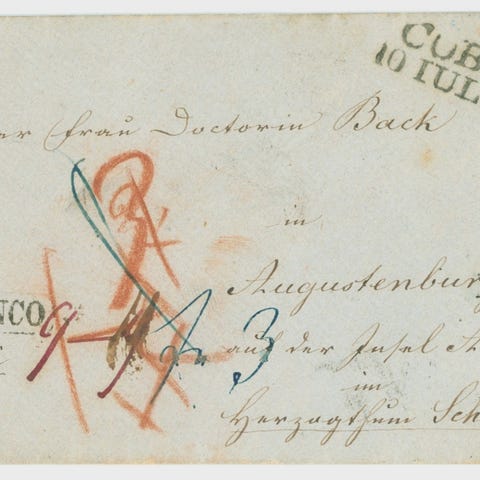 COB
10 IUL
er Frau Doctorin Back
in
Augustenbur
NCO
auf der Insel A
im
Herzogthum Sch
3